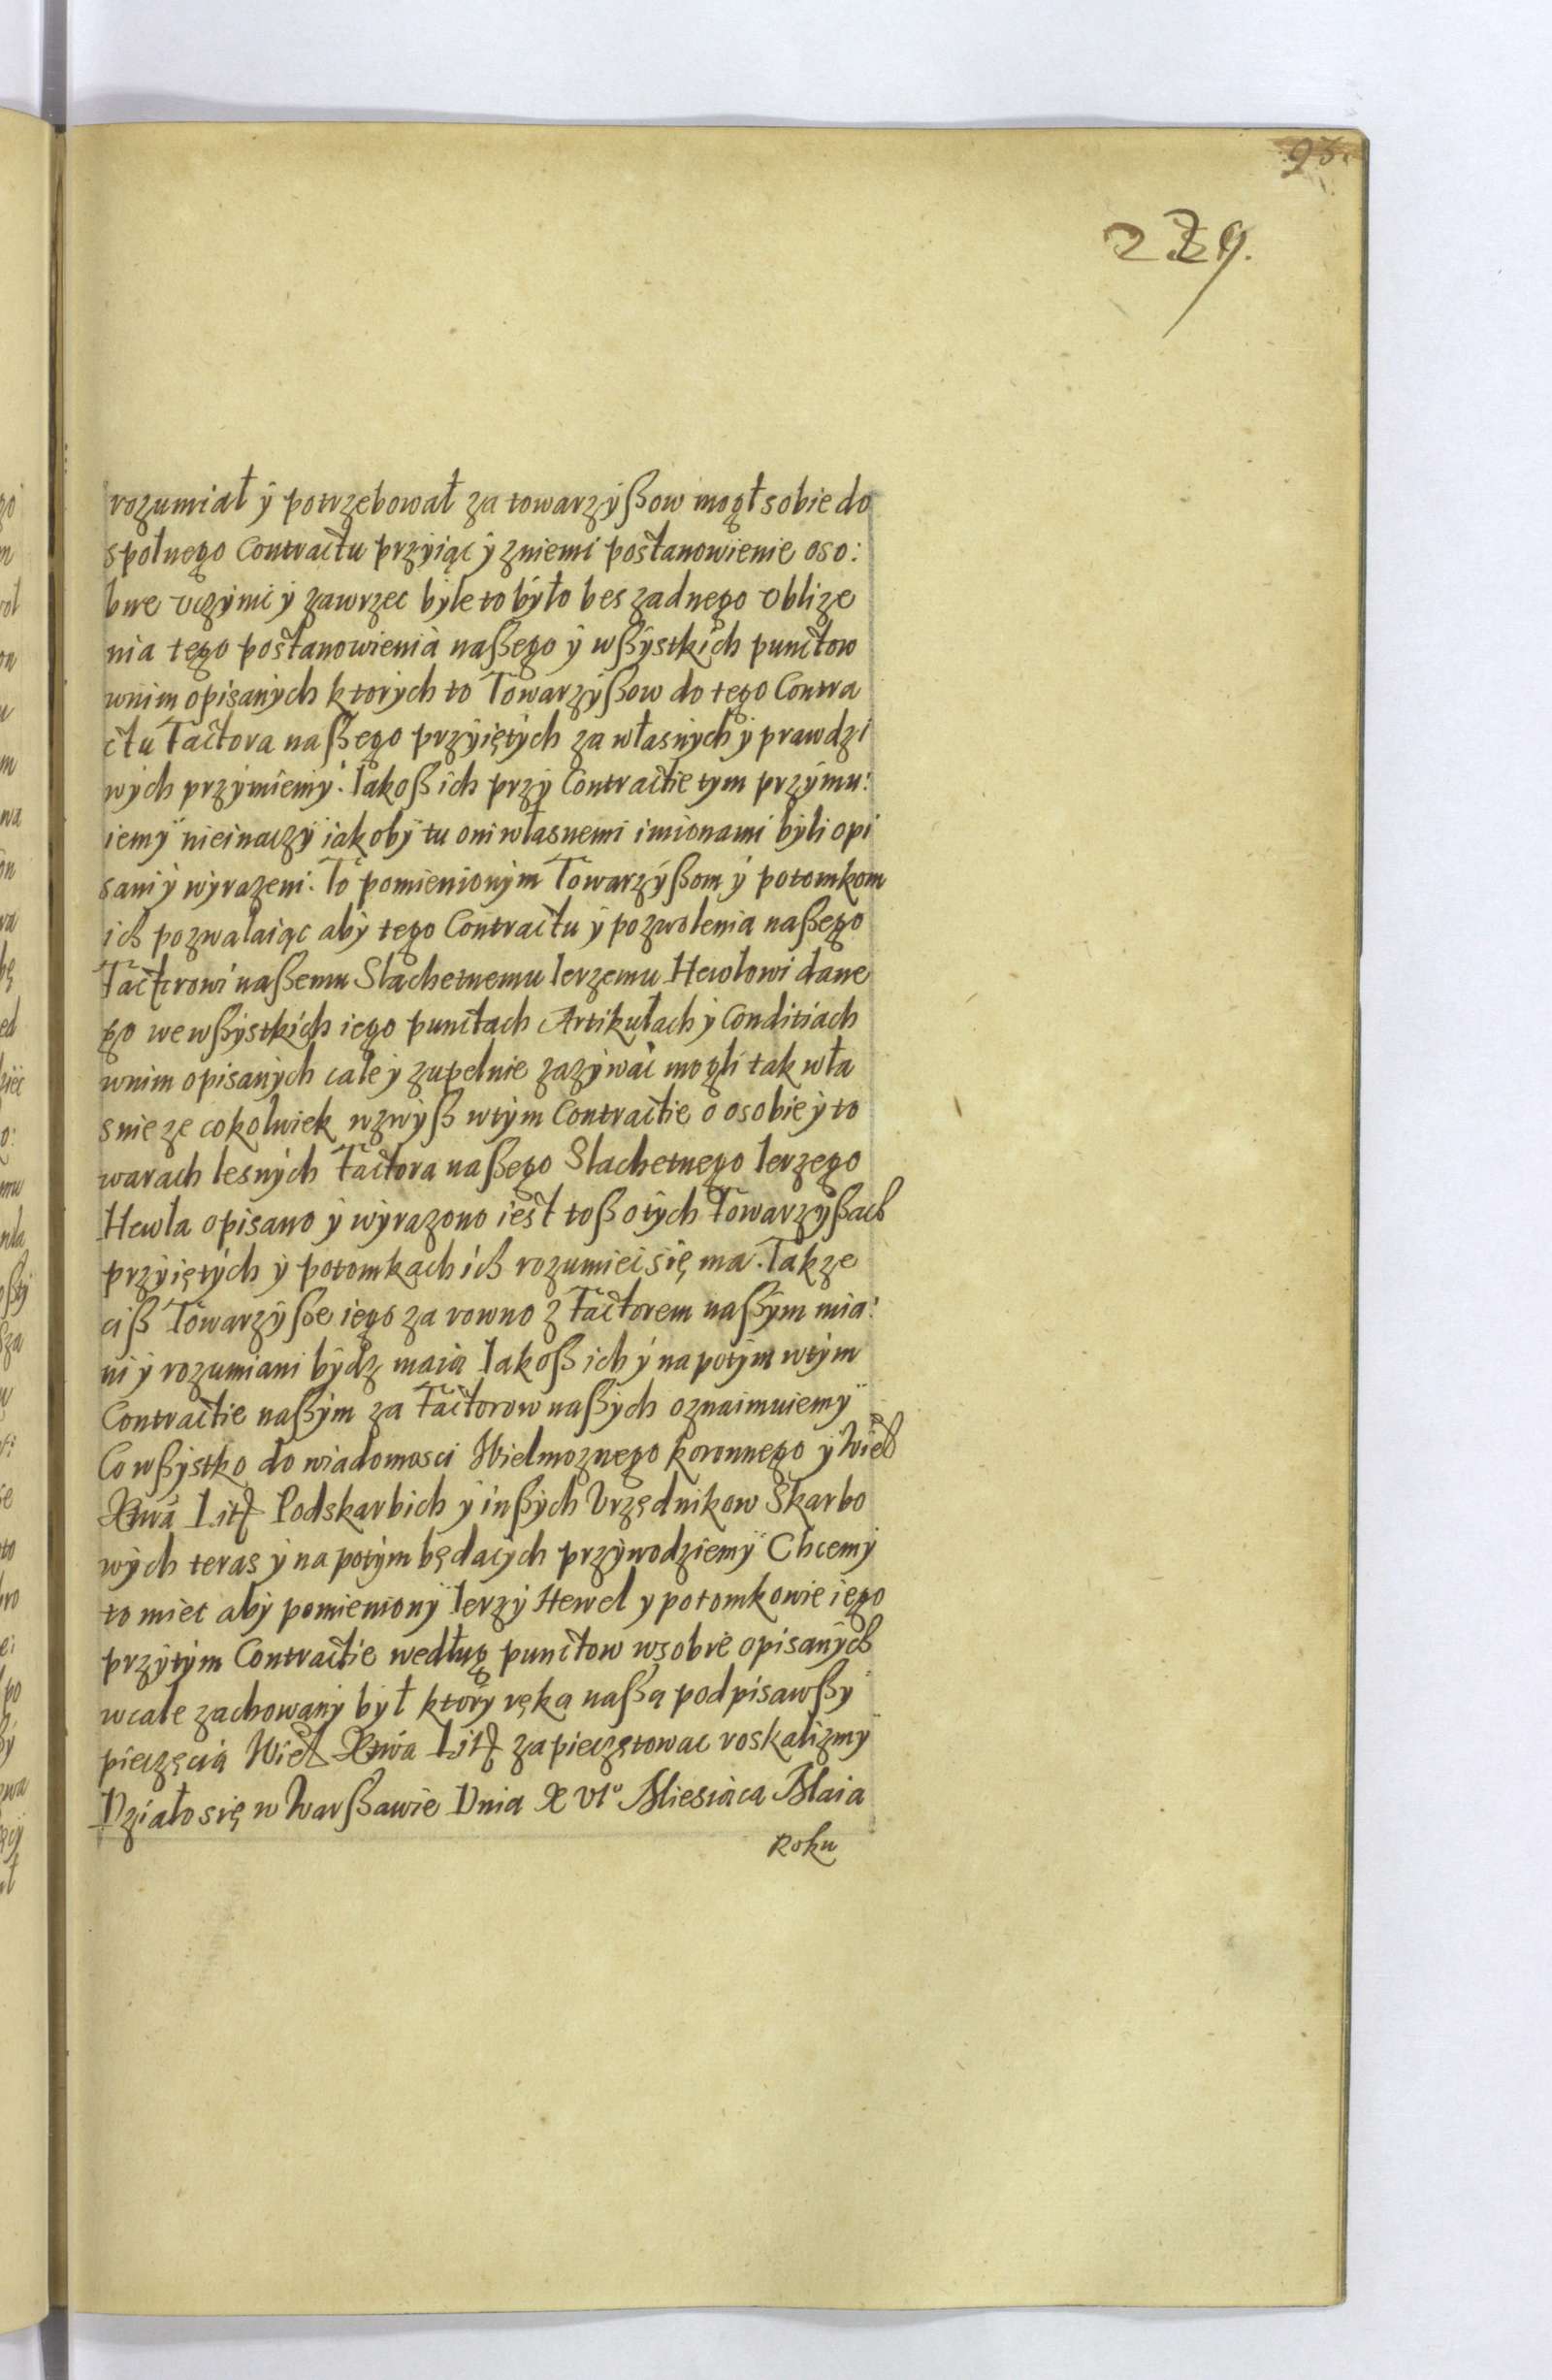 93.
229.
rozumiał ÿ potrzebował za towarzÿßow mogł sobie do
społnego Contractu przÿiąc ÿ zniemi postanowienie oso:
bne uczÿnic ÿ zawrzec bÿle to bÿło bes zadnego oblize
nia tego postanowienia naßego ÿ wßÿstkich punctow
wnim opisanÿch ktorÿch to Towarzÿßow do tego Contra
ctu Factora naßego przÿiętÿch za własnÿch ÿ prawdzi
wÿch przÿmiemÿ. Iakoß ich przÿ Contractie tym przÿmu:
iemÿ nieinaczÿ iakobÿ tu oni własnemi imionami bÿli opi
sani ÿ wÿrazeni. To pomienionÿm Towarzÿßom ÿ potomkom
ich pozwalaiąc abÿ tego Contractu ÿ pozwolenia naßego
Factorowi naßemu Slachetnemu Ierzemu Hewlowi dane
go we wßÿstkich iego punctach Artikułach ÿ Conditiach
wnim opisanÿch cale ÿ zupelnie zazÿwac mogli tak wła
snie ze cokolwiek wzwÿß wtÿm Contractie o osobie ÿ to
warach lesnÿch Factora naßego Slachetnego Ierzego
Hewla opisano ÿ wÿrazono iest toß o tÿch Towarzÿßach
przÿiętÿch ÿ potomkach ich rozumiec się ma. Takze
ciß Towarzÿße iego za rowno z Factorem naßÿm mia:
ni ÿ rozumiani bÿdz maią Iakoß ich ÿ na potÿm wtÿm
Contractie naßÿm za Factorow naßÿch oznaimuiemÿ
Co wßÿstko do wiadomosci Wielmoznego koronnego ÿ Wiel
Xtwa Litt Podskarbich ÿ inßÿch Urzędnikow Skarbo
wÿch teras ÿ na potÿm będacÿch przÿwodziemÿ Chcemÿ
to miec abÿ pomienionÿ Ierzÿ Hewel y potomkowie iego
przÿtÿm Contractie według punctow wsobie opisanÿch
wcale zachowanÿ bÿł ktorÿ ręką naßą podpisawßÿ
pieczęcią Wiel Xtwa Litt zapieczętowac roskalizmÿ
Działo się w Warßawie Dnia XVIº Miesiąca Maia
Roku